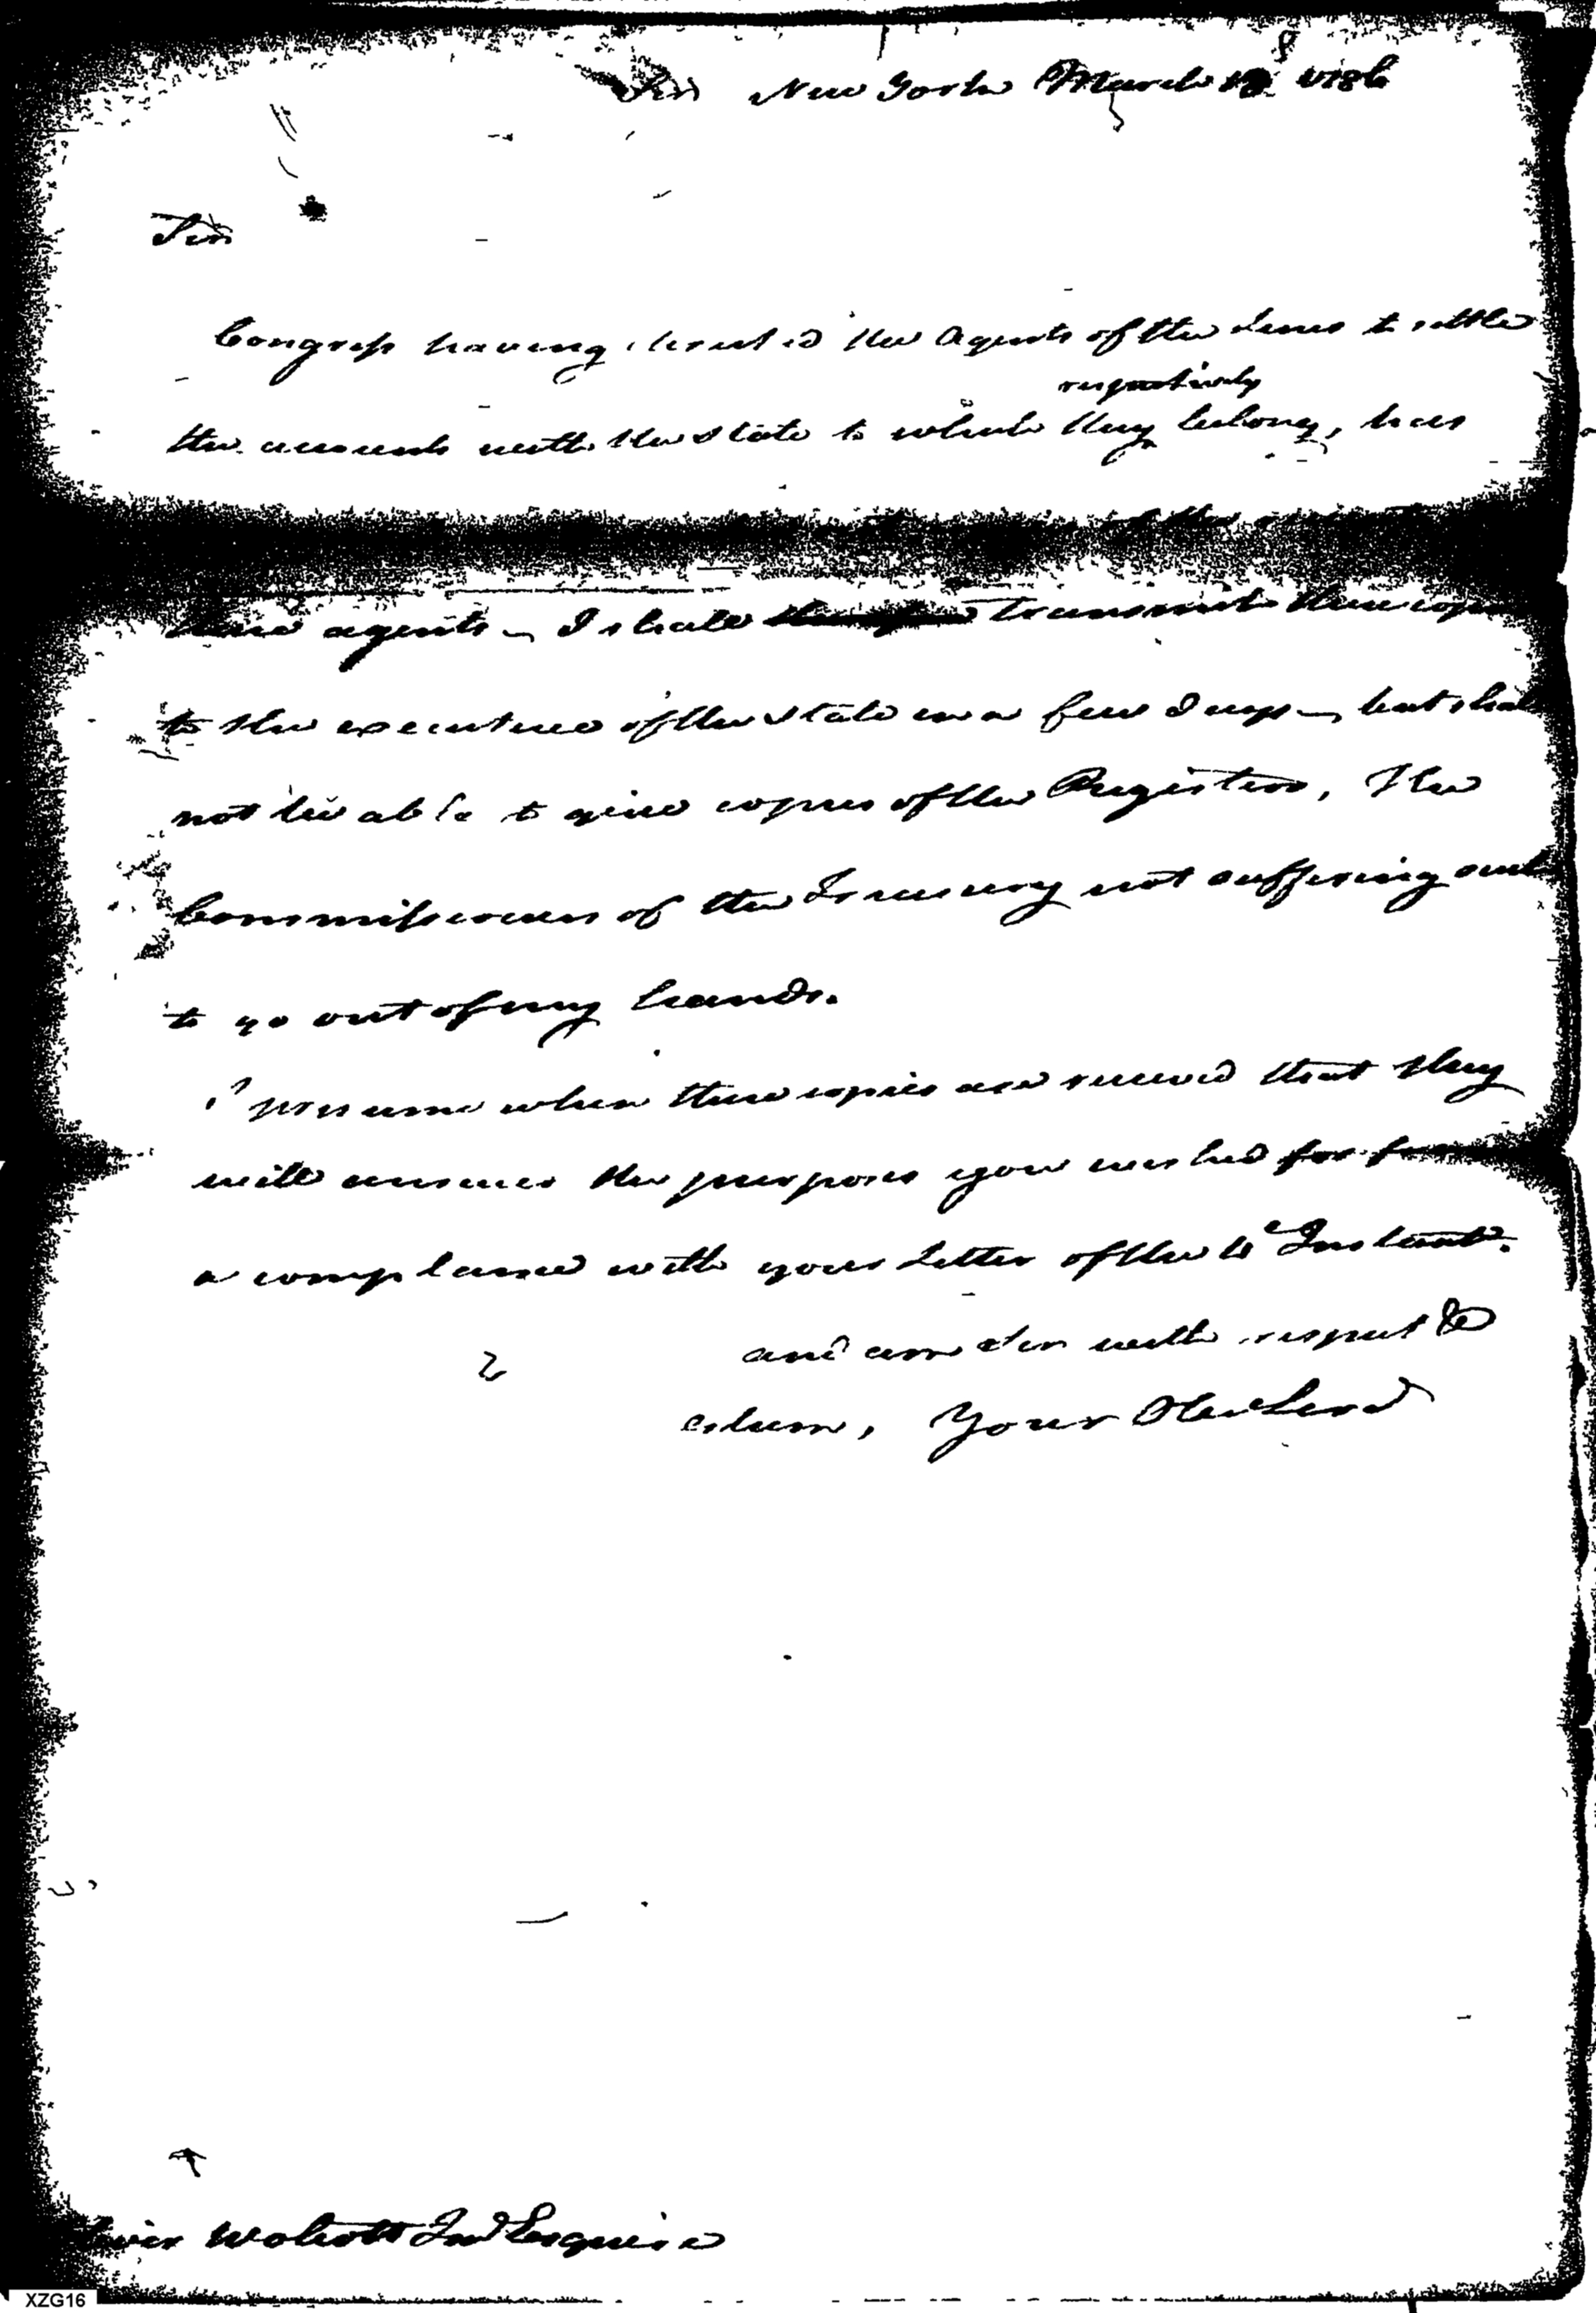 Sir New York March 18 1786
Sir
Congress having directed the Agents of the Lines to settle
respectively
the accounts with the State to which they belong, has
of the
these agents – I shall transmit these copies
to the executive of the State in a few days – but shall
not be able to give copies of the Registers, The
Commissioners of the Treasury not suffering
to go out of my hands.
I presume when these copies are received that they
will answer the purposes you wished for from
a complaince with your Letter of the Instant.
and am Sir with respect &
esteem, Your Obed Serv
Wolcott Jun Esquire
XZG16